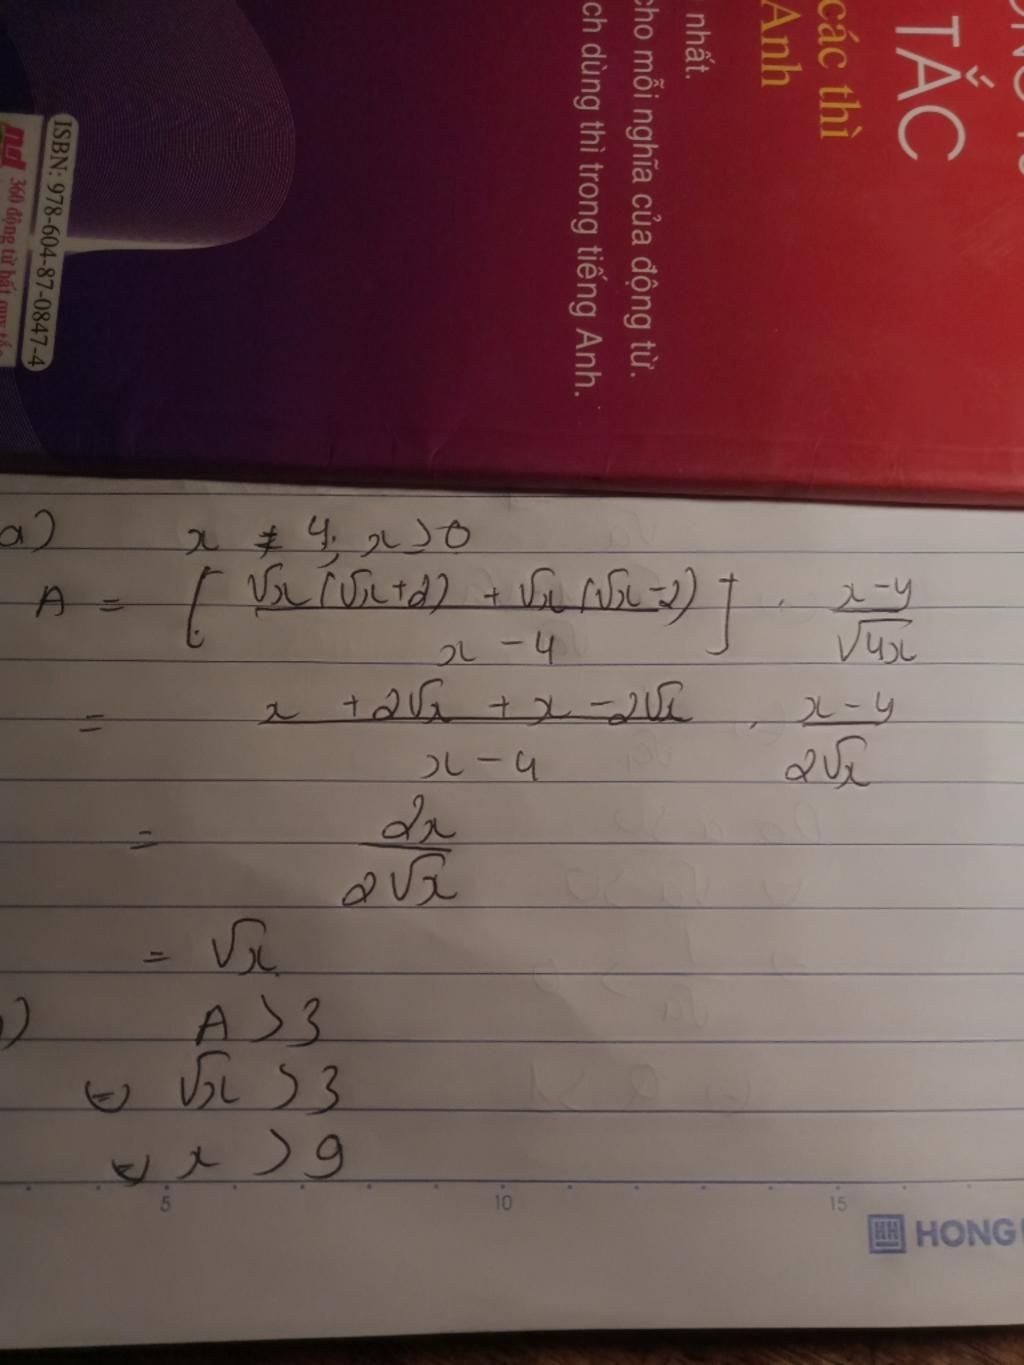 các thì
TẮC
Anh
nhất.
cho mỗi nghĩa của động từ.
ch dùng thì trong tiếng Anh.
ISBN: 978-604-87-0847-4
360 động từ bất quy tắc
a) x ≠ 4; x > 0
A = [ √x(√x+2) + √x(√x-2) / x - 4 ] . x-4 / √4x
= x + 2√x + x - 2√x / x - 4 . x - 4 / 2√x
= 2x / 2√x
= √x
) A > 3
⇔ √x > 3
⇔ x > 9
5 10 15
HONG